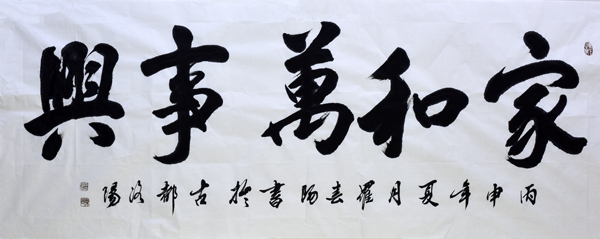 家和萬事興
丙申年夏月羅春陽書於古都洛陽